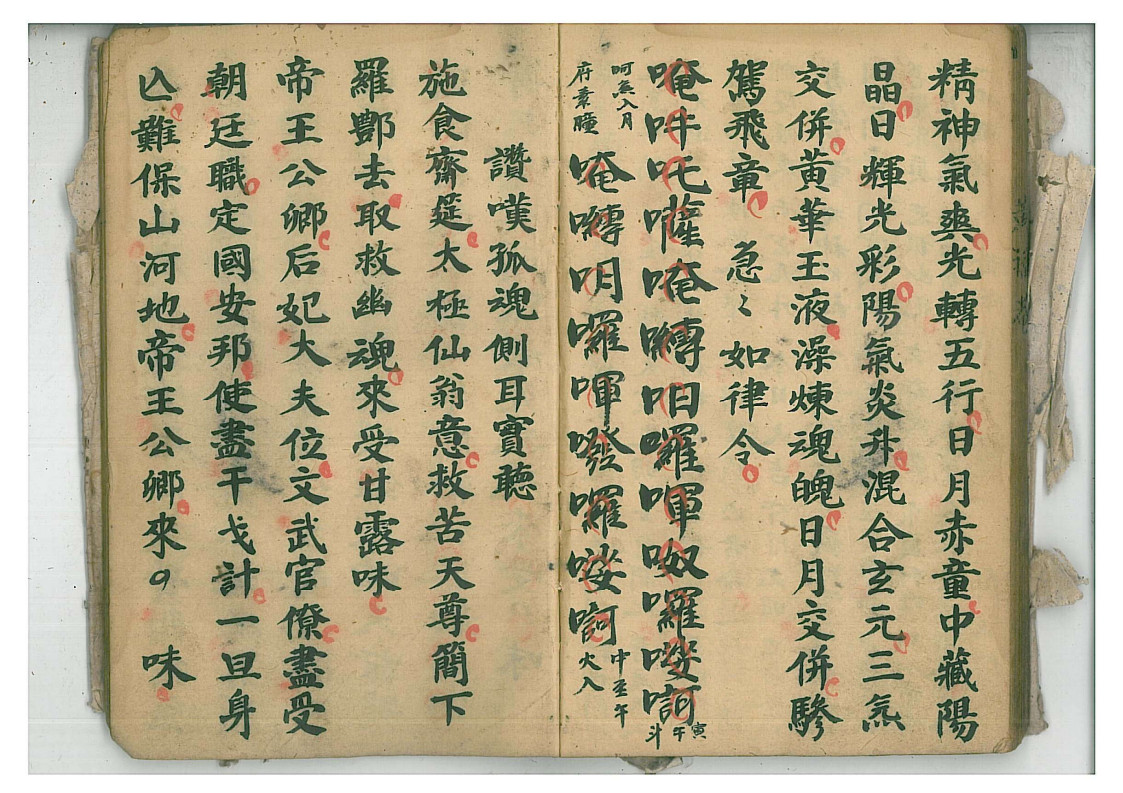 精神氣爽光轉五行日月赤童中藏陽
晶日輝光彩陽氣炎升混合玄元三炁
交併黃華玉液澡煉魂魄日月交併驂
駕飛章 急〻如律令
唵吽吒㘕唵囀呬囉㖀呶囉㗑訶 寅午斗
呵炁入月
府章瞳
唵囀明囉㖀㗶囉㗑訶 中至午
火入
讚嘆孤魂側耳實聽
施食齋筵太極仙翁意救苦天尊簡下
羅酆去取救幽魂來受甘露味
帝王公卿后妃大夫位文武官僚盡受
朝廷職定國安邦使盡干戈計一旦身
亾難保山河地帝王公卿來 味